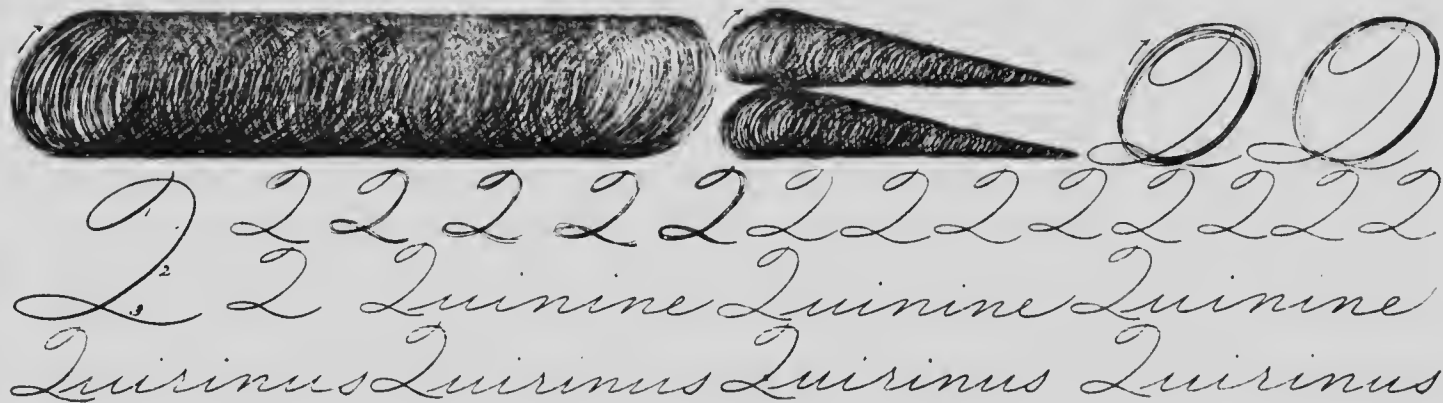 Q Q
Q Q Q Q Q Q Q Q Q Q Q Q Q Q
1
2
3
Q Quinine Quinine Quinine
Quirinus Quirinus Quirinus Quirinus